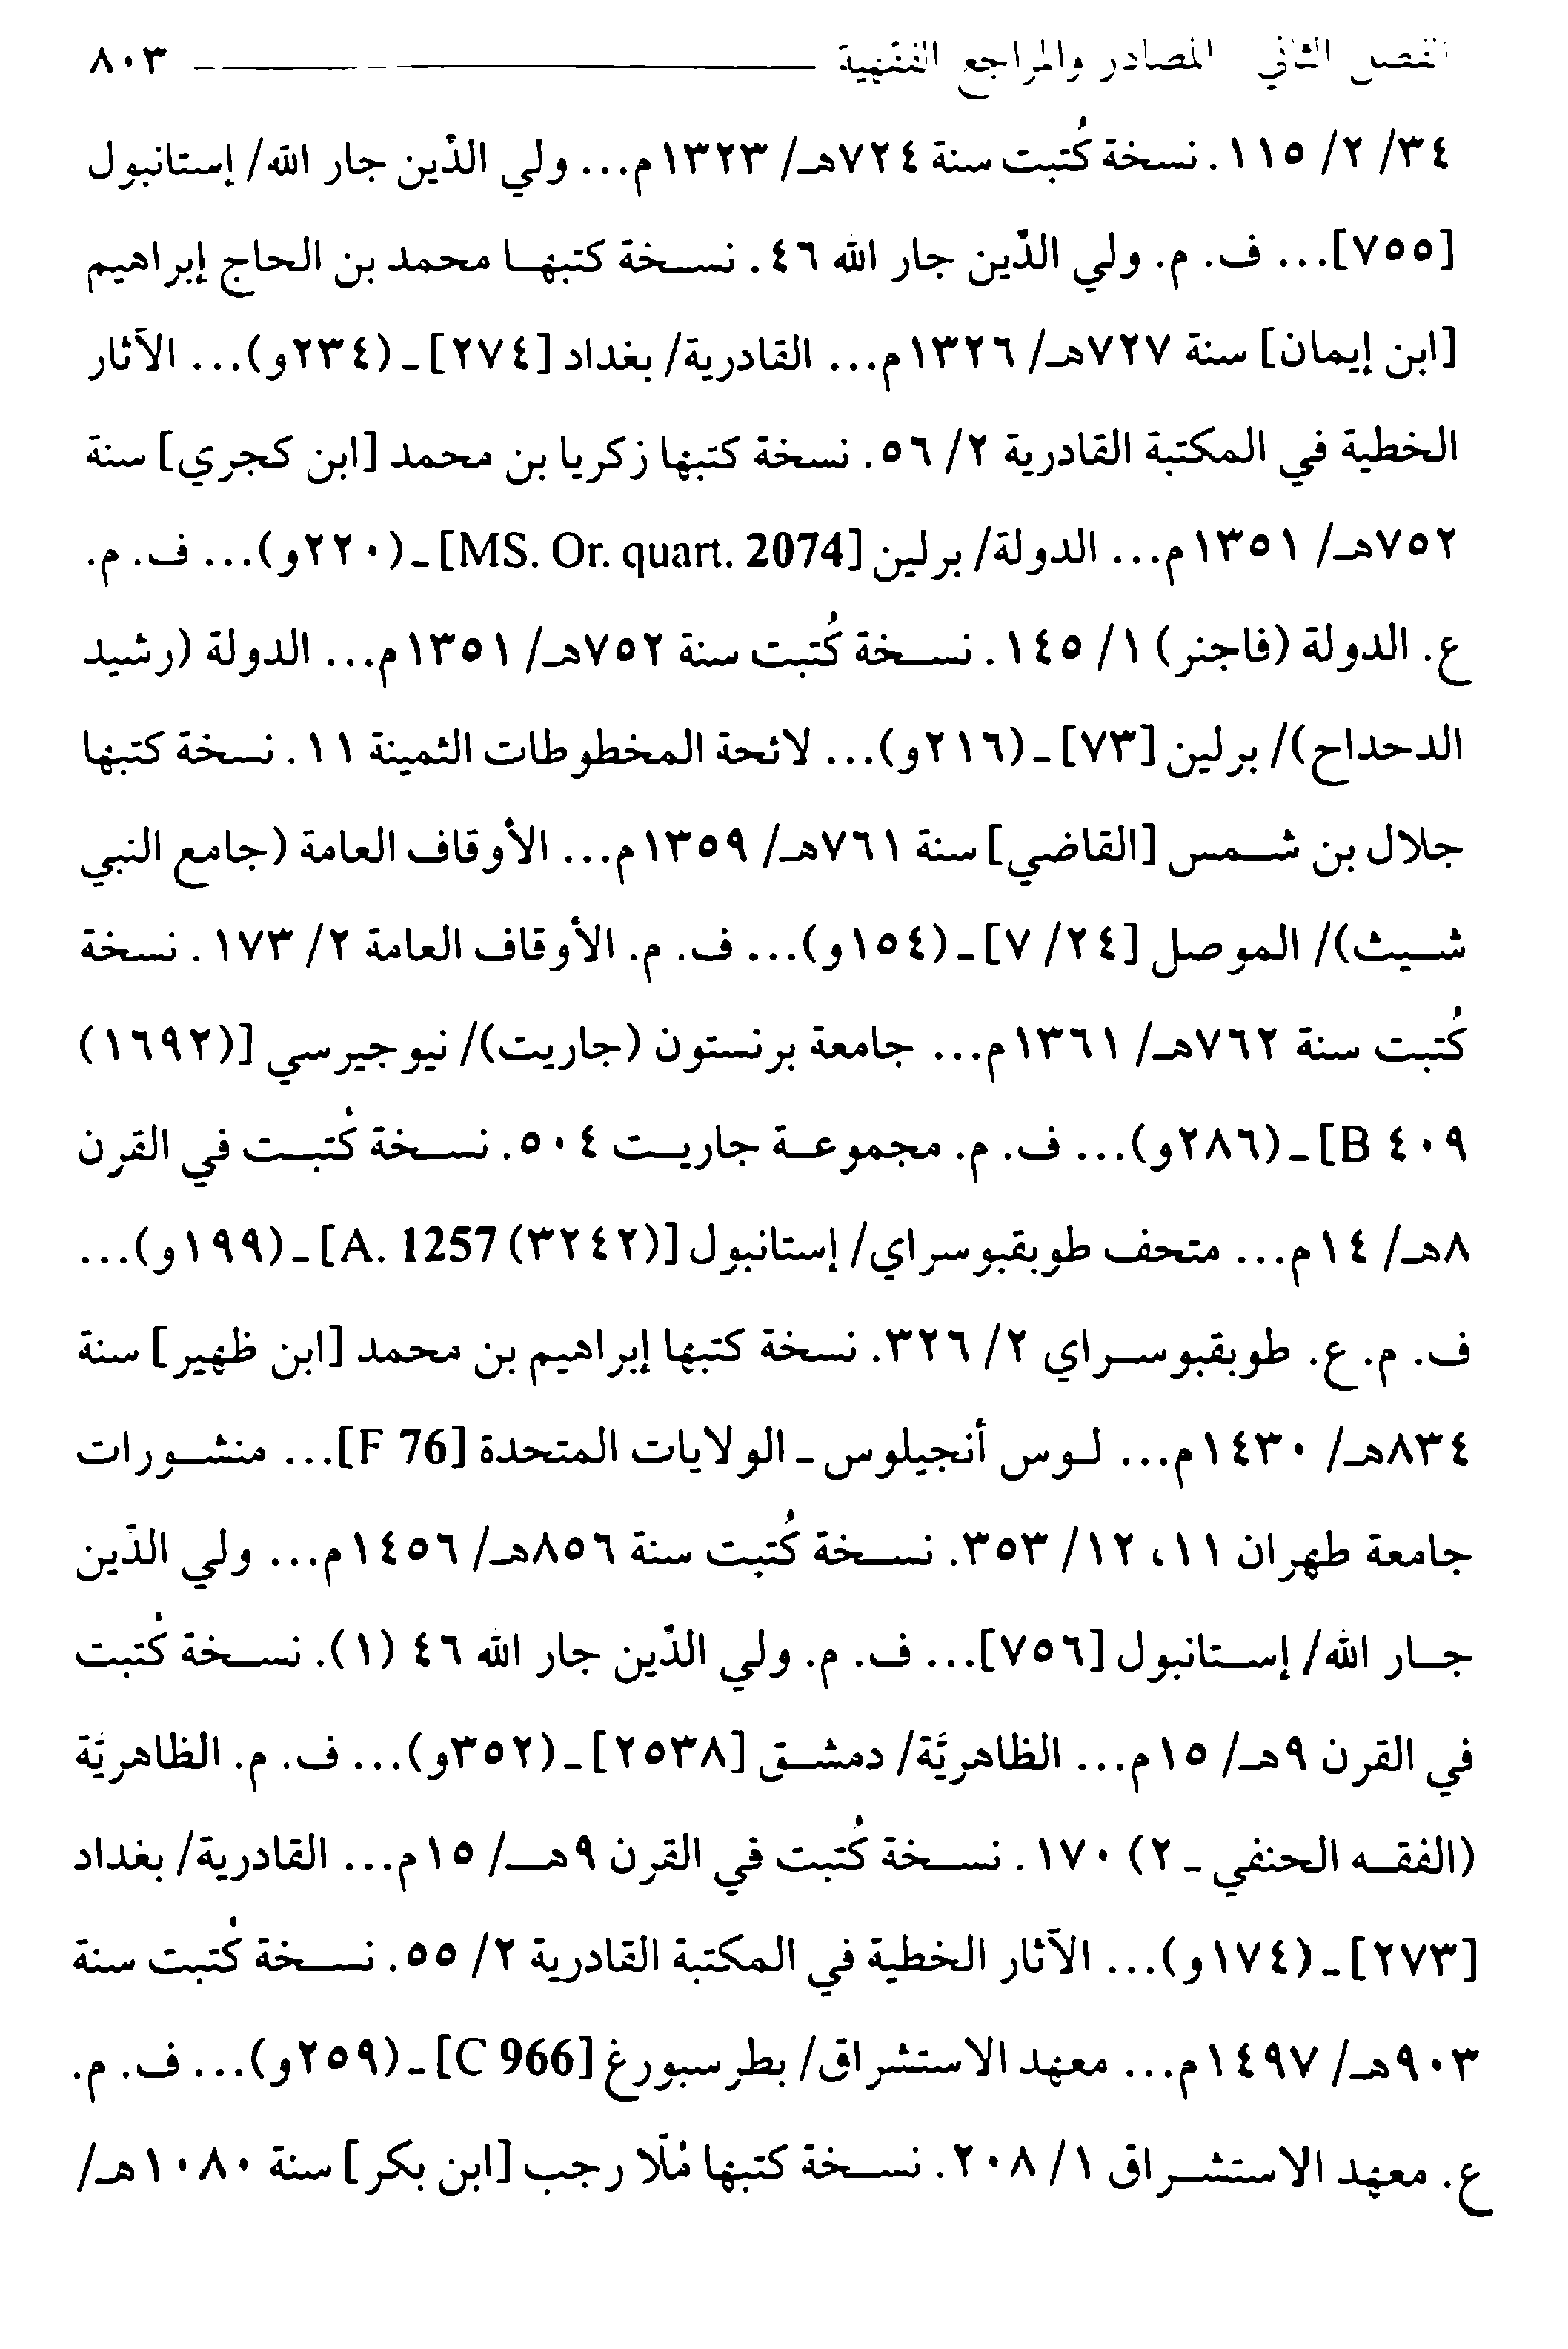 الفصل الثاني المصادر والمراجع الفقهية ٨٠٣
٣٤/ ٢/ ١١٥. نسخة كُتبت سنة ٧٢٤هـ/ ١٣٢٣م... ولي الدّين جار الله/ إستانبول
[٧٥٥]... ف. م. ولي الدّين جار الله ٤٦. نسخة كتبها محمد بن الحاج إبراهيم
[ابن إيمان] سنة ٧٢٧هـ/ ١٣٢٦م... القادرية/ بغداد [٢٧٤] ـ (٢٣٤و)... الآثار
الخطية في المكتبة القادرية ٢/ ٥٦. نسخة كتبها زكريا بن محمد [ابن كجري] سنة
٧٥٢هـ/ ١٣٥١م... الدولة/ برلين [MS. Or. quart. 2074] ـ (٢٢٠و)... ف. م.
ع. الدولة (فاجنر) ١/ ١٤٥. نسخة كُتبت سنة ٧٥٢هـ/ ١٣٥١م... الدولة (رشيد
الدحداح)/ برلين [٧٣] ـ (٢١٦و)... لائحة المخطوطات الثمينة ١١. نسخة كتبها
جلال بن شمس [القاضي] سنة ٧٦١هـ/ ١٣٥٩م... الأوقاف العامة (جامع النبي
شيث)/ الموصل [٢٤/ ٧] ـ (١٥٤و)... ف. م. الأوقاف العامة ٢/ ١٧٣. نسخة
كُتبت سنة ٧٦٢هـ/ ١٣٦١م... جامعة برنستون (جاريت)/ نيوجيرسي [(١٦٩٢)
٤٠٩ B] ـ (٢٨٦و)... ف. م. مجموعة جاريت ٥٠٤. نسخة كُتبت في القرن
٨هـ/ ١٤م... متحف طوبقبوسراي/ إستانبول [(٣٢٤٢) A. 1257] ـ (١٩٩و)...
ف. م. ع. طوبقبوسراي ٢/ ٣٢٦. نسخة كتبها إبراهيم بن محمد [ابن ظهير] سنة
٨٣٤هـ/ ١٤٣٠م... لوس أنجيلوس ـ الولايات المتحدة [F 76]... منشورات
جامعة طهران ١١، ١٢/ ٣٥٣. نسخة كُتبت سنة ٨٥٦هـ/ ١٤٥٦م... ولي الدّين
جار الله/ إستانبول [٧٥٦]... ف. م. ولي الدّين جار الله ٤٦ (١). نسخة كُتبت
في القرن ٩هـ/ ١٥م... الظاهريَّة/ دمشق [٢٥٣٨] ـ (٣٥٢و)... ف. م. الظاهريَّة
(الفقه الحنفي ـ ٢) ١٧٠. نسخة كُتبت في القرن ٩هـ/ ١٥م... القادرية/ بغداد
[٢٧٣] ـ (١٧٤و)... الآثار الخطية في المكتبة القادرية ٢/ ٥٥. نسخة كُتبت سنة
٩٠٣هـ/ ١٤٩٧م... معهد الاستشراق/ بطرسبورغ [C 966] ـ (٢٥٩و)... ف. م.
ع. معهد الاستشراق ١/ ٢٠٨. نسخة كتبها مُلّا رجب [ابن بكر] سنة ١٠٨٠هـ/